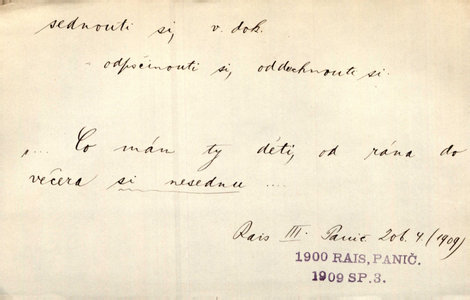 sednouti si, v. dok.
- odpočinouti si, oddechnouti si.
„... Co mám ty děti, od rána do
večera si nesednu ....
Rais III. Panič. 206. 4. (1909)
1900 RAIS, PANIČ.
1909 SP. 3.